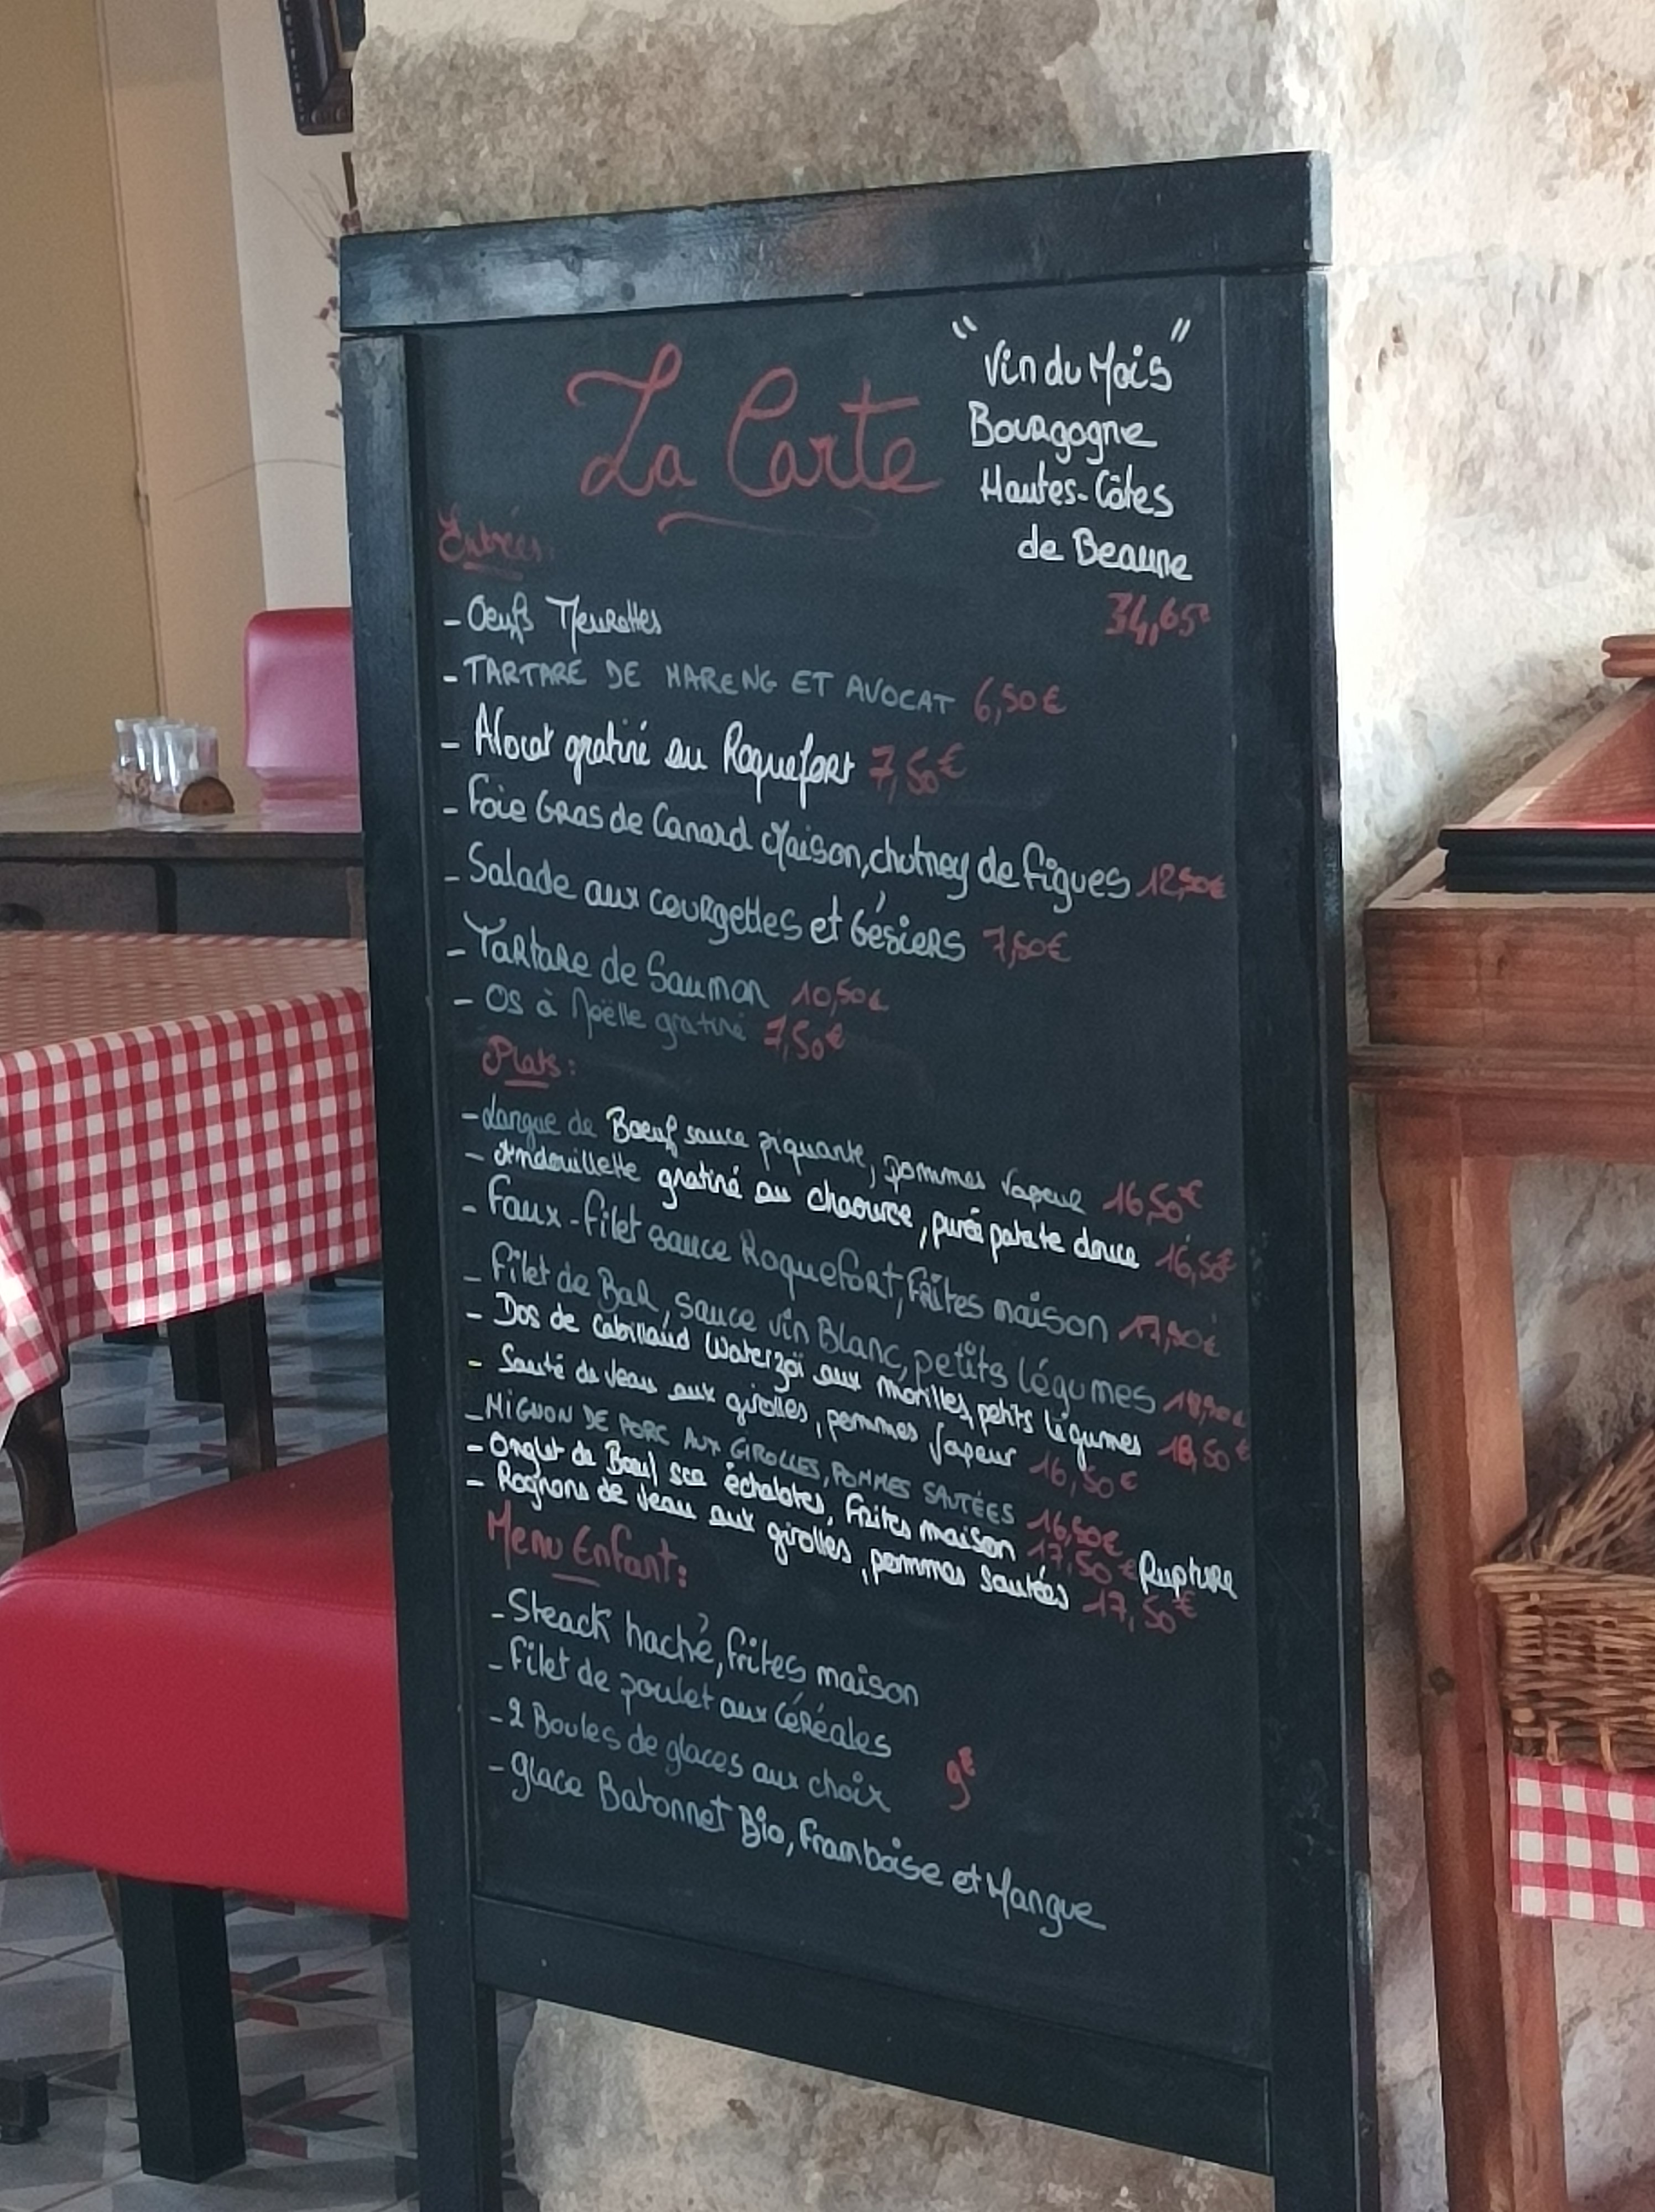 La Carte
"Vin du Mois"
Bourgogne
Hautes-Côtes
de Beaune
34,65€
Entrées:
- Oeufs Meurettes
- TARTARE DE HARENG ET AVOCAT 6,50€
- Avocat gratiné au Roquefort 7,50€
- Foie Gras de Canard Maison, chutney de figues 12,50€
- Salade aux courgettes et Gésiers 7,50€
- Tartare de Saumon 10,50€
- Os à Moëlle gratiné 7,50€
Plats:
- Langue de Boeuf sauce piquante, pommes vapeur 16,50€
- Andouillette gratiné au chaource, purée patate douce 16,50€
- Faux-filet sauce Roquefort, Frites maison 17,50€
- Filet de Bar, sauce vin Blanc, petits légumes 18,50€
- Dos de Cabillaud Waterzoï aux morilles, petits légumes 18,50€
- Sauté de Veau aux girolles, pommes vapeur 16,50€
- MIGNON DE PORC AUX GIROLLES, POMMES SAUTÉES 16,50€
- Onglet de Boeuf sce échalotes, Frites maison 17,50€ Rupture
- Rognons de Veau aux girolles, pommes sautées 17,50€
Menu Enfant:
- Steack haché, frites maison
- Filet de poulet aux Céréales
- 2 Boules de glaces aux choix 9€
- Glace Batonnet Bio, Framboise et Mangue